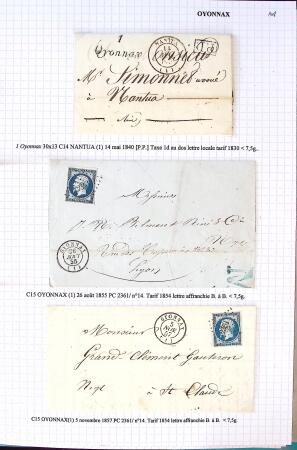 OYONNAX
1
Oyonnax
NANTUA
14
(1)
Monsieur
Mr. Simonnet avoué
à Nantua
(Ain)
1 Oyonnax 30x13 C14 NANTUA (1) 14 mai 1840 [P.P.] Taxe 1d au dos lettre locale tarif 1830 < 7,5g.
Messieurs
OYONNAX
26
AOUT
55
(1)
Lyon
C15 OYONNAX (1) 26 août 1855 PC 2361/ n°14. Tarif 1854 lettre affranchie B. à B. < 7,5g.
OYONNAX
5
NOV.
57
(1)
Monsieur
Grand Clément Gauteron
Négt à St Claude
C15 OYONNAX(1) 5 novembre 1857 PC 2361/ n°14. Tarif 1854 lettre affranchie B. à B. < 7,5g.